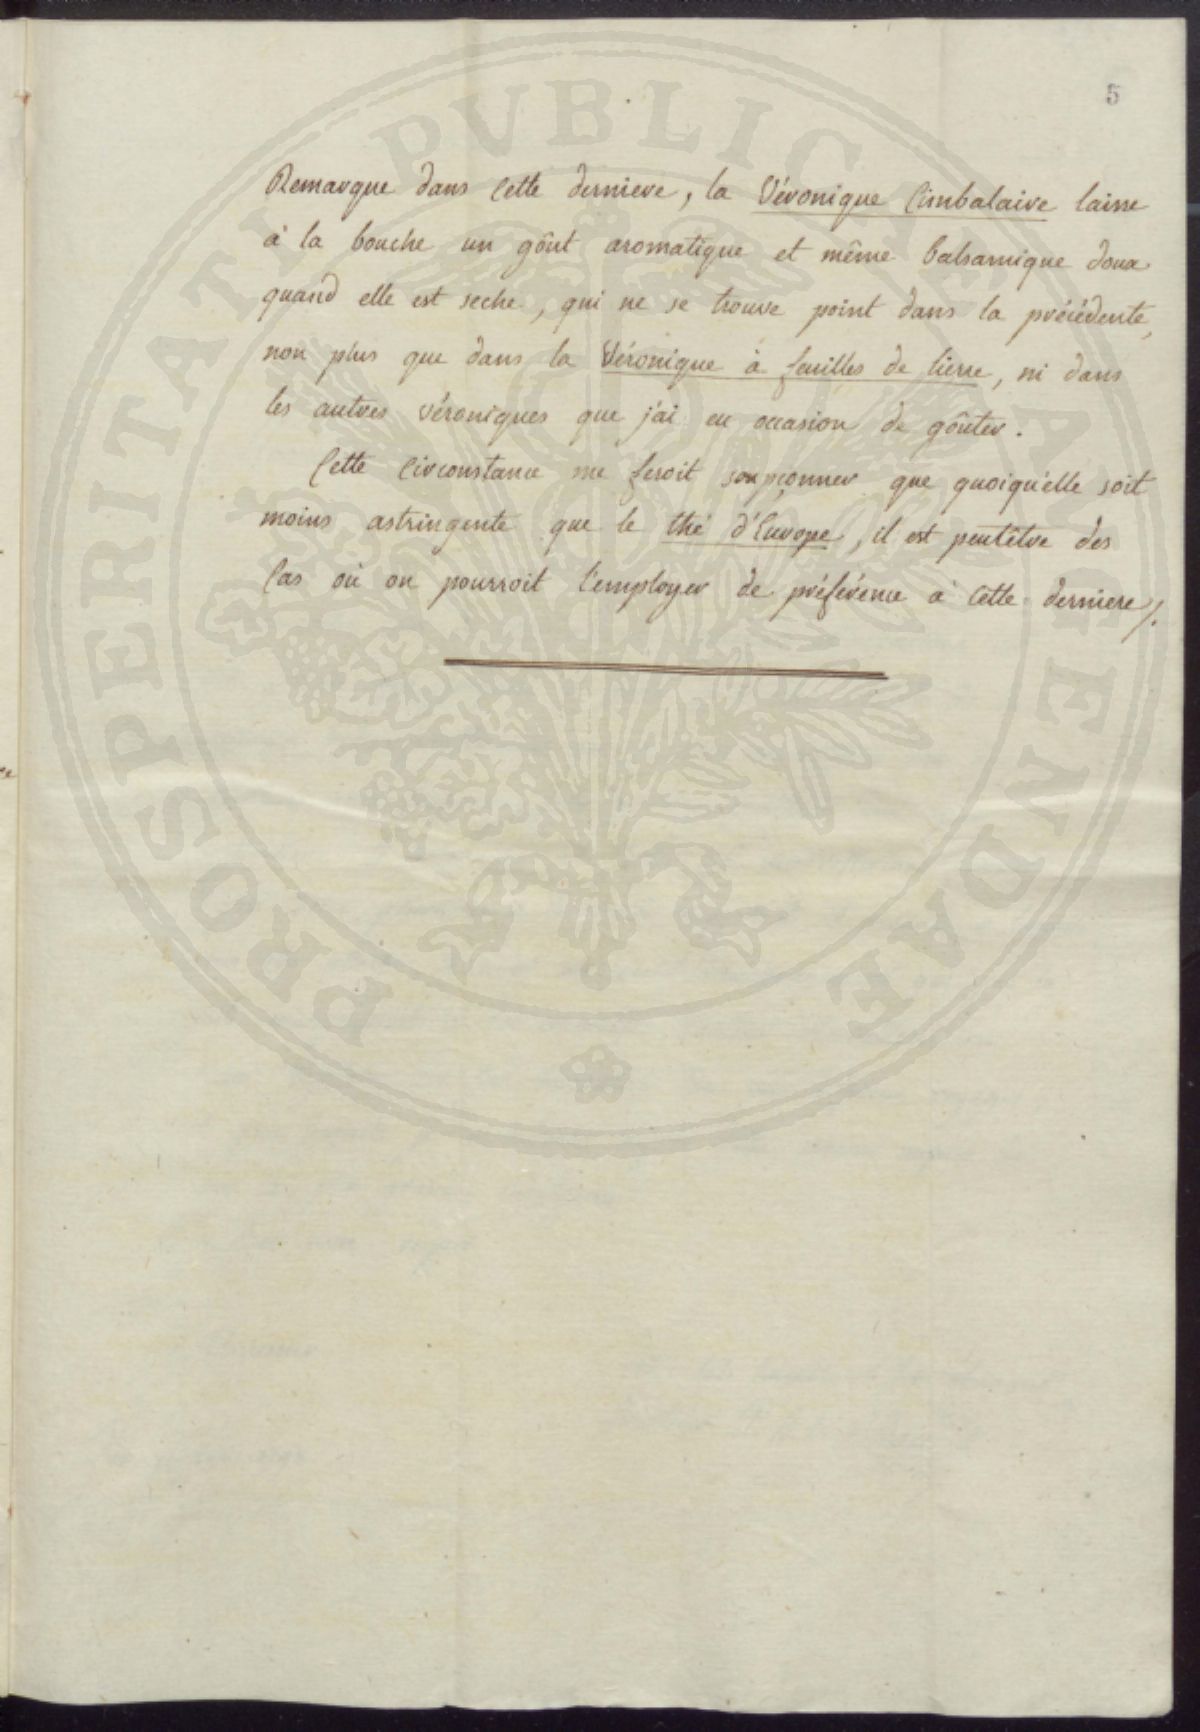 5
PROSPERITATI PVBLICAE AVGENDAE
Remarque dans cette derniere, la Véronique Cimbalaire laisse
à la bouche un goût aromatique et même balsamique doux
quand elle est seche, qui ne se trouve point dans la précédente,
non plus que dans la Véronique à feuilles de lierre, ni dans
les autres véroniques que j'ai eu occasion de goûter.
Cette circonstance me feroit soupçonner que quoiqu'elle soit
moins astringente que le thé d'Europe, il est peutêtre des
cas où on pourroit l'employer de préférence à cette derniere /.